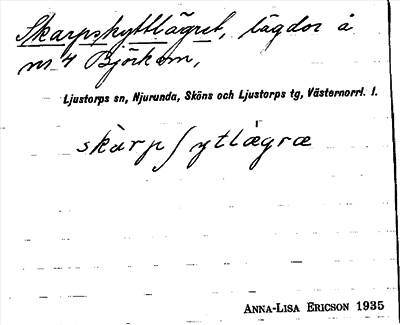 Skarpskyttlägret, lägdor å
nr 4 Björkom,
Ljustorps sn, Njurunda, Sköns och Ljustorps tg, Västernorrl. l.
skàrpʃytlægræ
ANNA-LISA ERICSON 1935